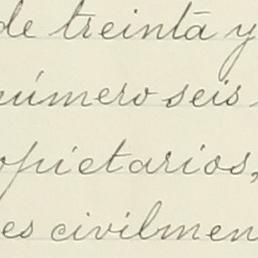 de treinta y
número seis
opietarios,
es civilmen